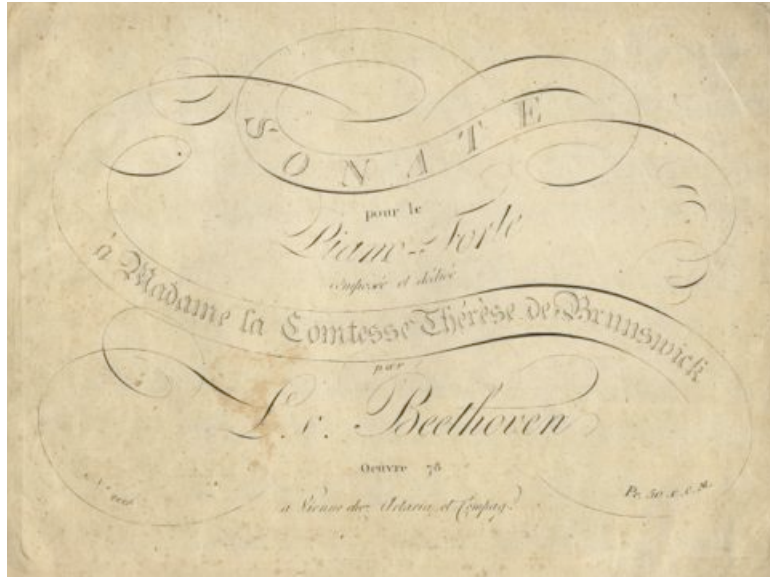 SONATE
pour le
Piano-Forte
composée et dédiée
à Madame la Comtesse Thérèse de Brunswick
par
L. v. Beethoven
Oeuvre 78
à Vienne chez Artaria et Compag.